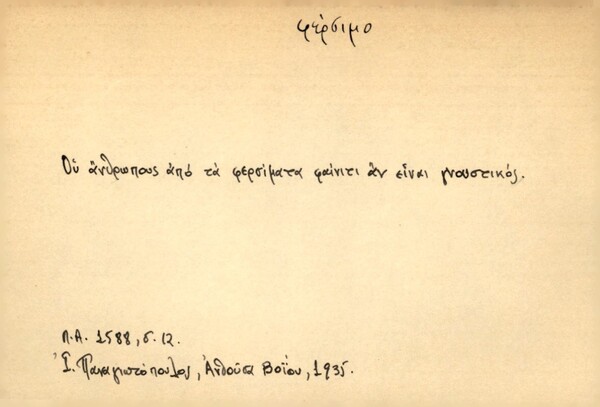 φέρσιμο
Οὑ ἄνθρωπους ἀπό τὰ φερσίματα φαίνιτι ἄν εἶναι γνουστικός.
Λ.Α. 1588, σ. 12.
Ἰ. Παναγιωτόπουλος, Ἀνθοῦσα Βοΐου, 1935.